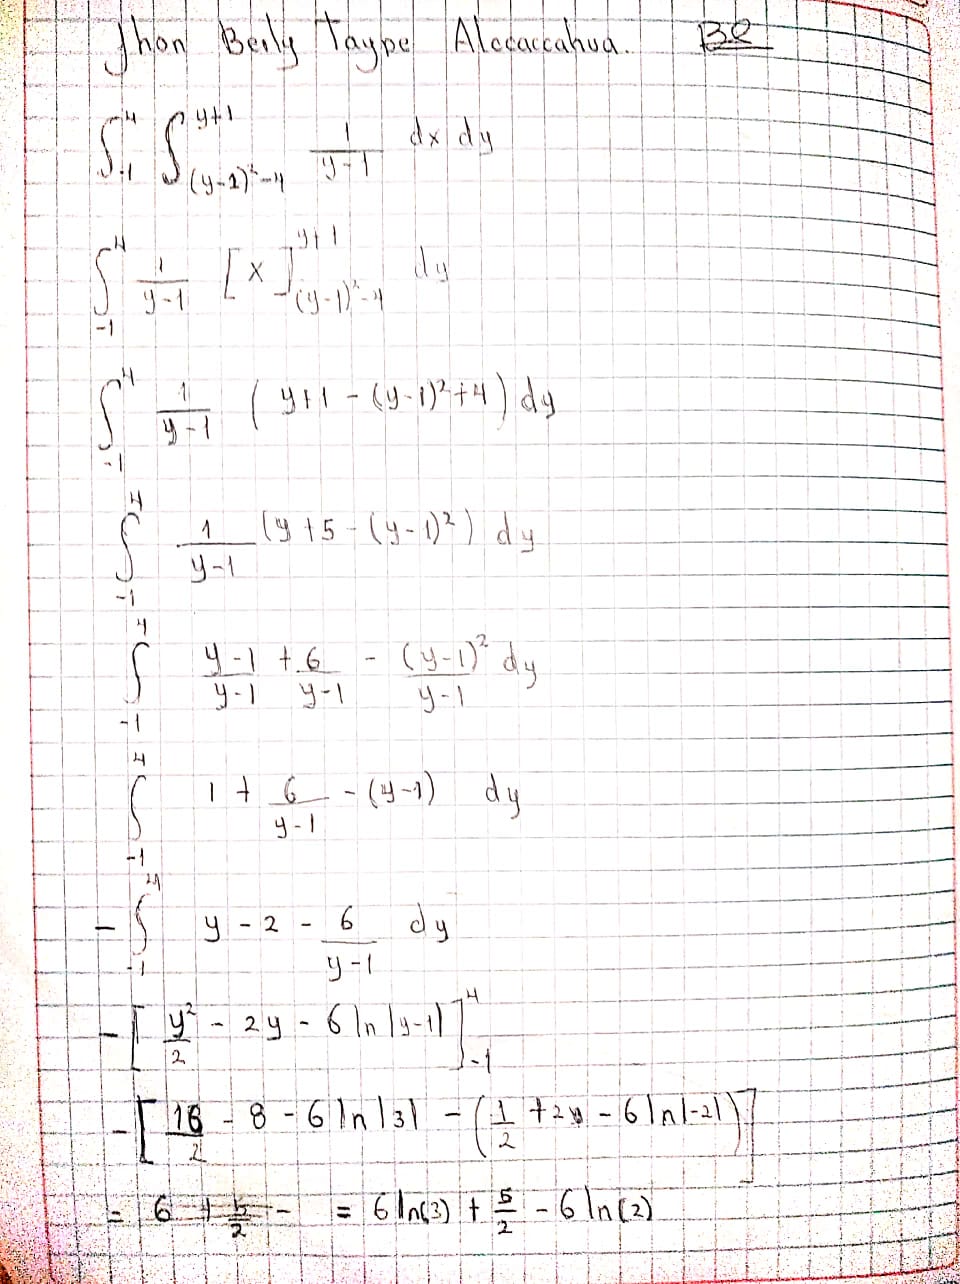 Jhon Beily Taype Alccaccahua. B2
∫_{-1}^{4} ∫_{(y-1)²-4}^{y+1} 1/(y-1) dx dy
∫_{-1}^{4} 1/(y-1) [x]_{(y-1)²-4}^{y+1} dy
∫_{-1}^{4} 1/(y-1) (y+1-(y-1)²+4) dy
∫_{-1}^{4} 1/(y-1) (y+5-(y-1)²) dy
∫_{-1}^{4} (y-1)/(y-1) + 6/(y-1) - (y-1)²/(y-1) dy
∫_{-1}^{4} 1 + 6/(y-1) - (y-1) dy
-∫_{-1}^{4} y - 2 - 6/(y-1) dy
-[y²/2 - 2y - 6 ln|y-1|]_{-1}^{4}
-[16/2 - 8 - 6 ln|3| - (1/2 + 2 - 6 ln|-2|)]
= 6 + 5/2 - = 6 ln(3) + 5/2 - 6 ln(2)